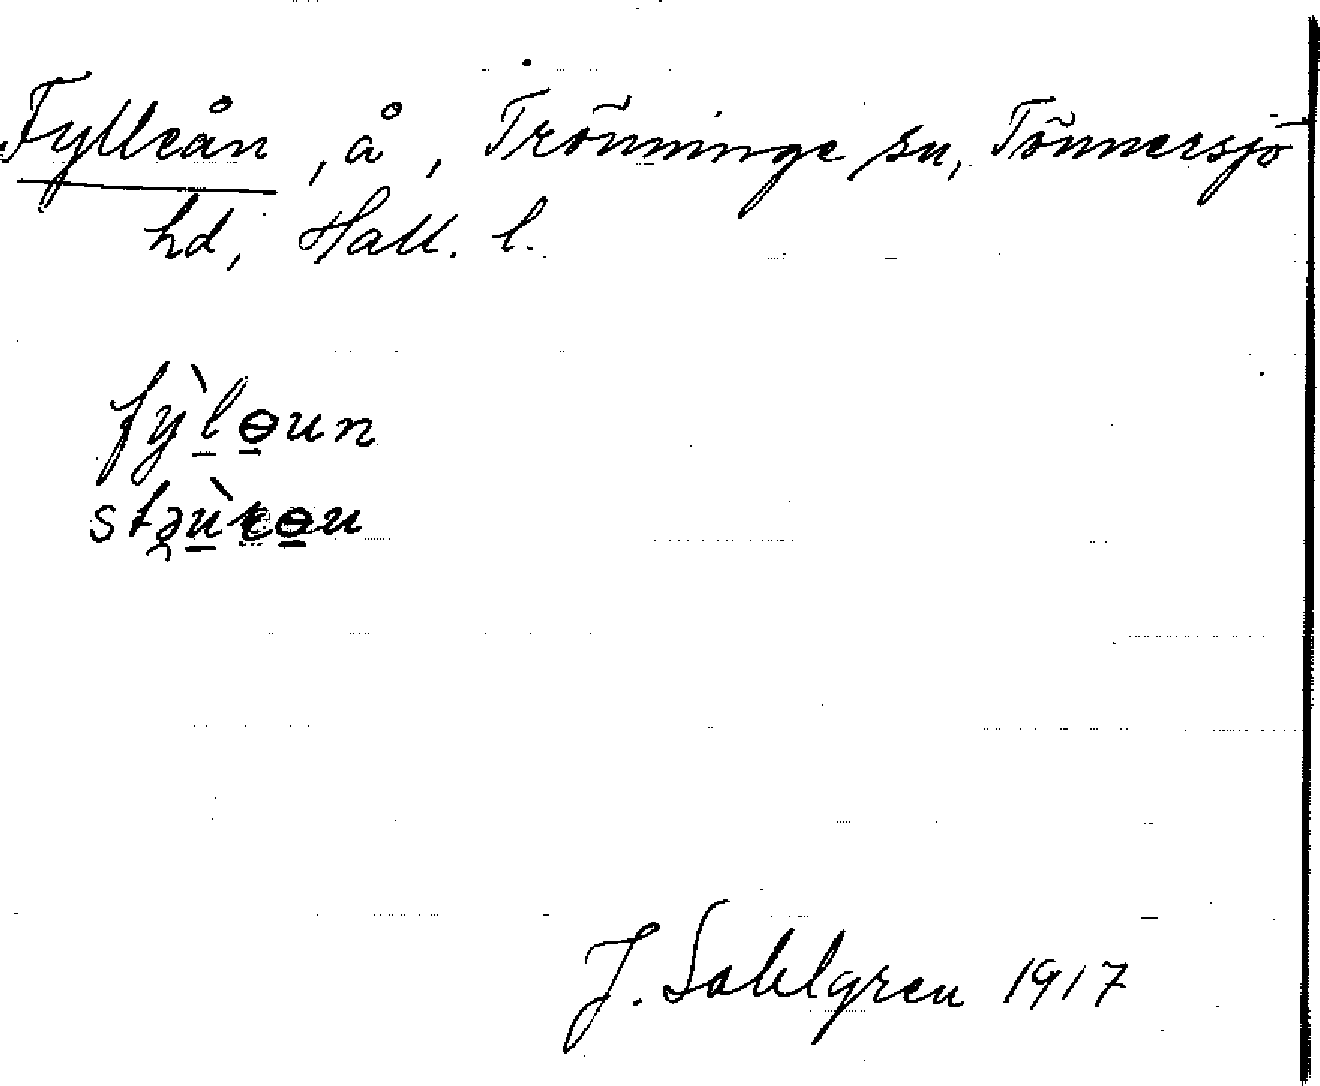 Fylleån, å, Trönninge sn, Tönnersjö
hd, Hall. l.
fỳlɵun
J. Sahlgren 1917